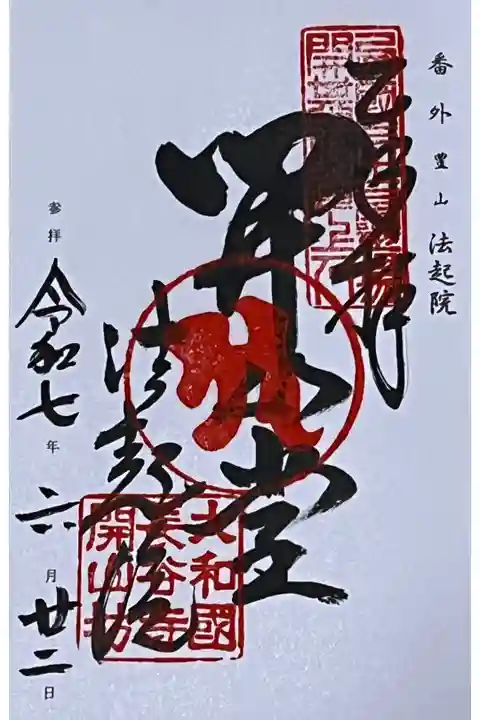 番外 豊山 法起院
奉拝
開山堂
法起院
大和國
長谷寺
開山坊
参拝 令和七年 六月 廿二日